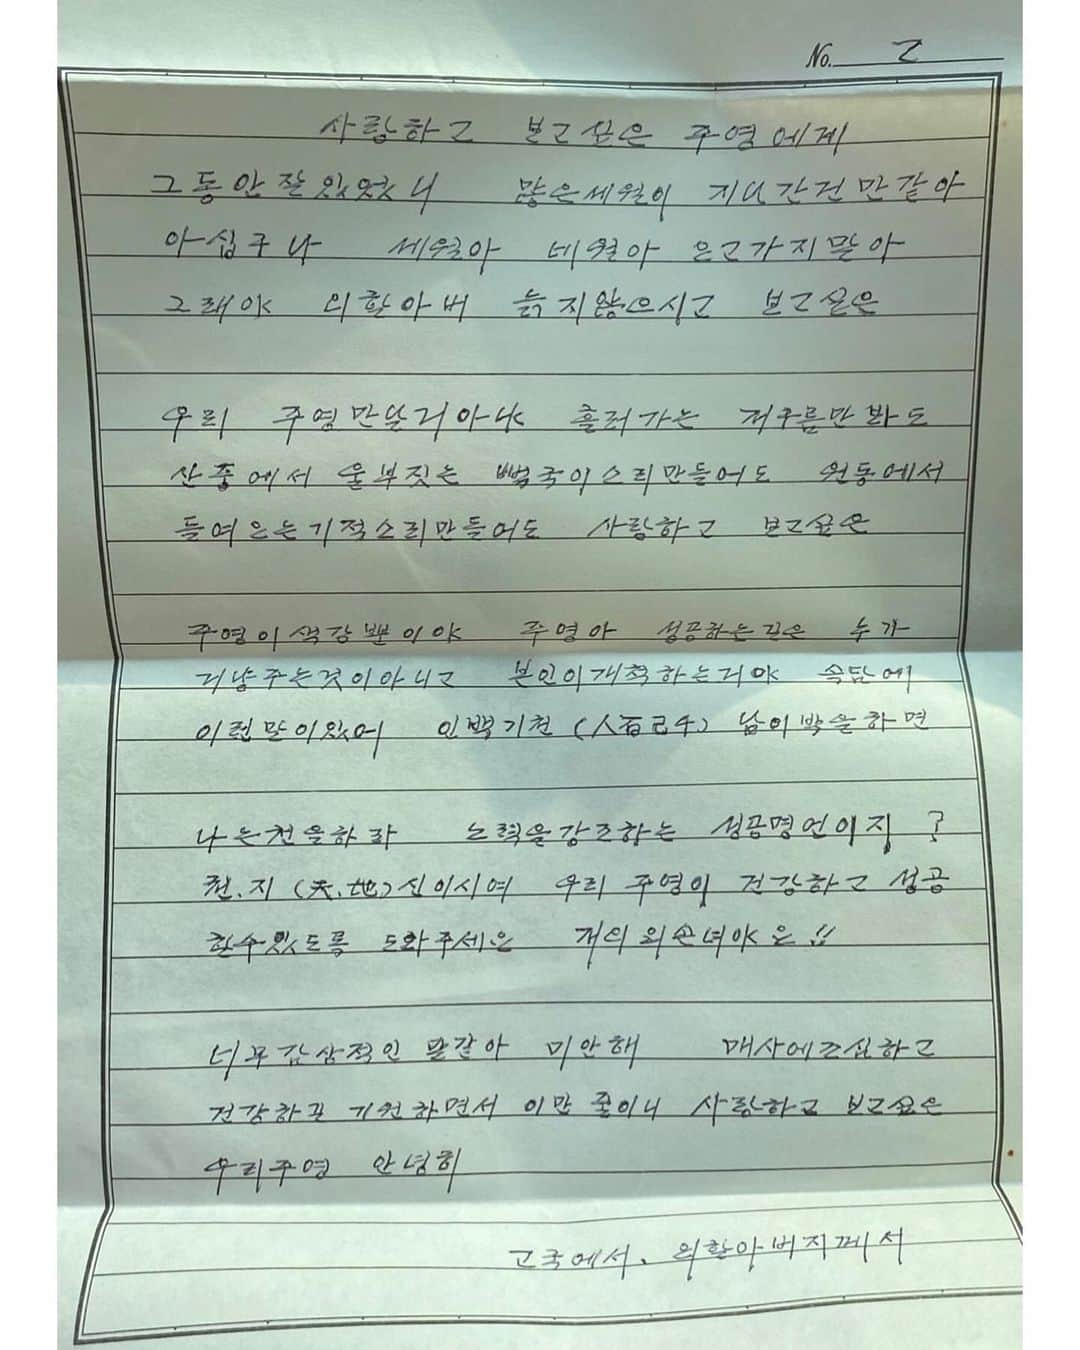 No. 2
사랑하고 보고싶은 주영에게
그동안잘있었니 많은세월이 지나간건만같아
아쉽구나 세월아 네월아 오고가지말아
그래야 외할아버 늙지않으시고 보고싶은
우리 주영만날거아냐 흘러가는 저구름만봐도
산중에서 울부짓는 뻐국이소리만들어도 원동에서
들여오는기적소리만들어도 사랑하고 보고싶은
주영이생각뿐이야 주영아 성공하는길은 누가
거냥주는것이아니고 본인이개척하는거야 속담에
이런말이있어 인백기천 (人百己千) 남이백을하면
나는천을하라 노력을강조하는 성공명언이지 ?
천.지 (天.地)신이시여 우리 주영이 건강하고 성공
할수있도록 도와주세요 저의외손녀야요 !!
너무감상적인 말같아 미안해 매사에조심하고
건강하길 기원하면서 이만 줄이니 사랑하고 보고싶은
우리주영 안녕히
고국에서. 외할아버지께서